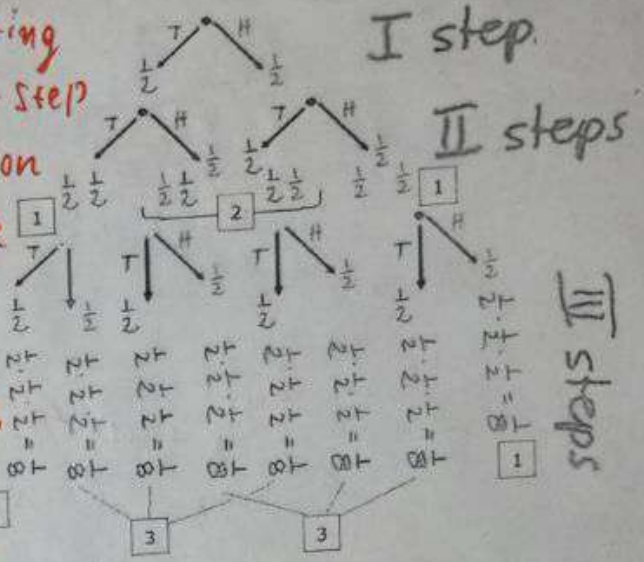 ing
T H
I step.
1/2 1/2
step
T H T H
II steps
on
1/2 1/2 1/2
1/2 1/2 1/2 1/2 1/2 1/2 1/2 1/2
1 2 1
T T H T H T H
1/2 1/2 1/2 1/2 1/2 1/2 1/2 1/2
III steps
1/2 · 1/2 · 1/2 = 1/8
1/2 · 1/2 · 1/2 = 1/8
1/2 · 1/2 · 1/2 = 1/8
1/2 · 1/2 · 1/2 = 1/8
1/2 · 1/2 · 1/2 = 1/8
1/2 · 1/2 · 1/2 = 1/8
1/2 · 1/2 · 1/2 = 1/8
1/2 · 1/2 · 1/2 = 1/8
1
3 3